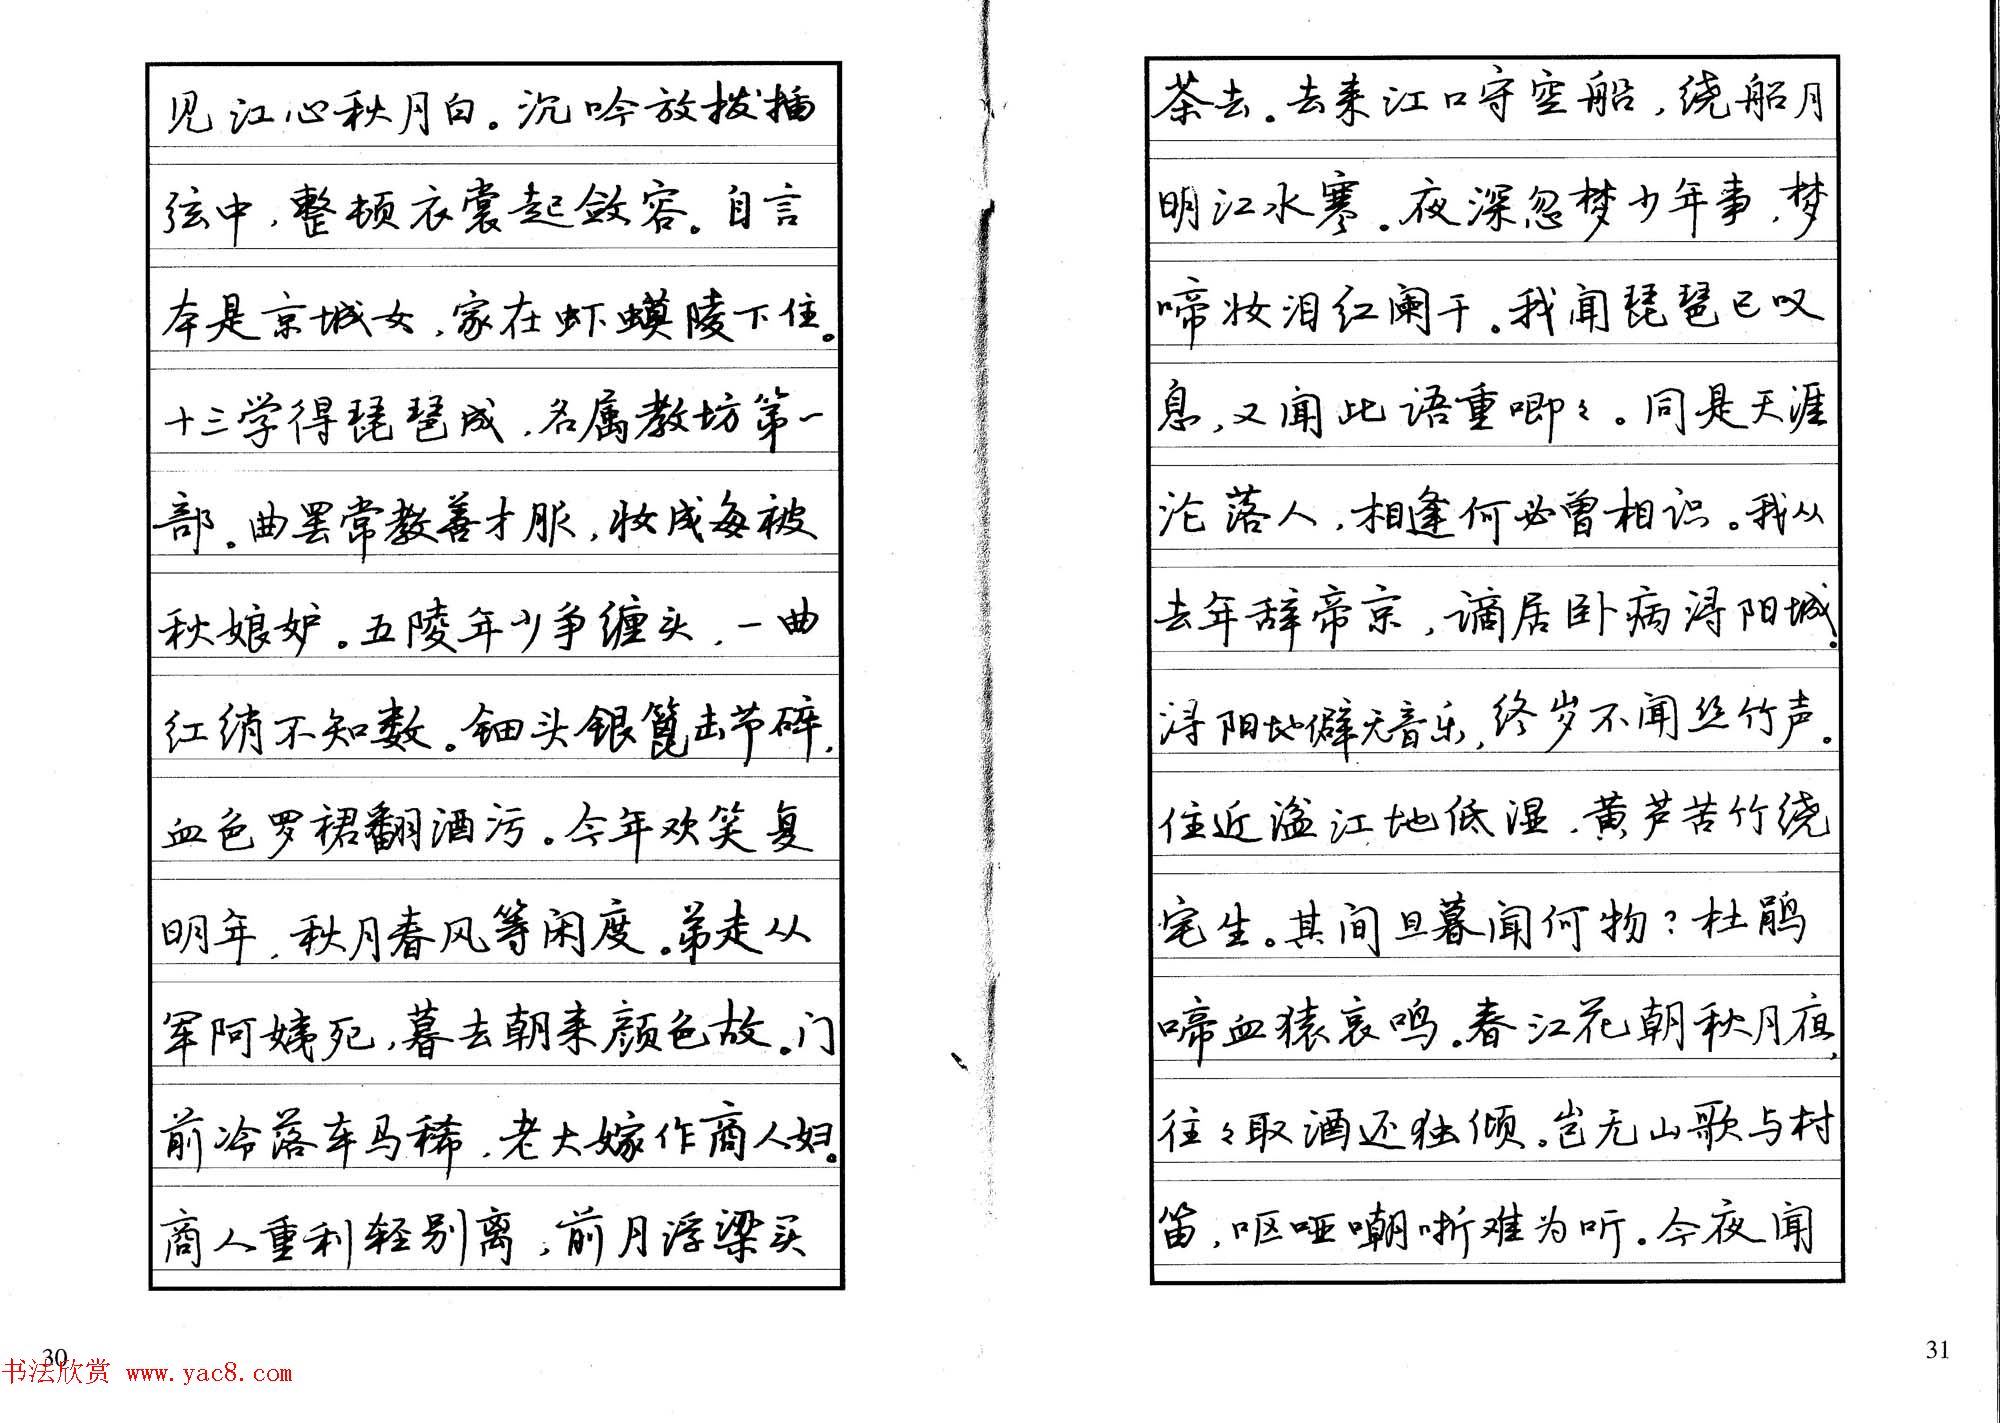 见江心秋月白。沉吟放拨插
弦中，整顿衣裳起敛容。自言
本是京城女，家在虾蟆陵下住。
十三学得琵琶成，名属教坊第一
部。曲罢常教善才服，妆成每被
秋娘妒。五陵年少争缠头，一曲
红绡不知数。钿头银篦击节碎，
血色罗裙翻酒污。今年欢笑复
明年，秋月春风等闲度。弟走从
军阿姨死，暮去朝来颜色故。门
前冷落车马稀，老大嫁作商人妇。
商人重利轻别离，前月浮梁买
30
茶去。去来江口守空船，绕船月
明江水寒。夜深忽梦少年事，梦
啼妆泪红阑干。我闻琵琶已叹
息，又闻此语重唧々。同是天涯
沦落人，相逢何必曾相识。我从
去年辞帝京，谪居卧病浔阳城。
浔阳地僻无音乐，终岁不闻丝竹声。
住近湓江地低湿，黄芦苦竹绕
宅生。其间旦暮闻何物？杜鹃
啼血猿哀鸣。春江花朝秋月夜，
往々取酒还独倾。岂无山歌与村
笛，呕哑嘲哳难为听。今夜闻
31
书法欣赏 www.yac8.com